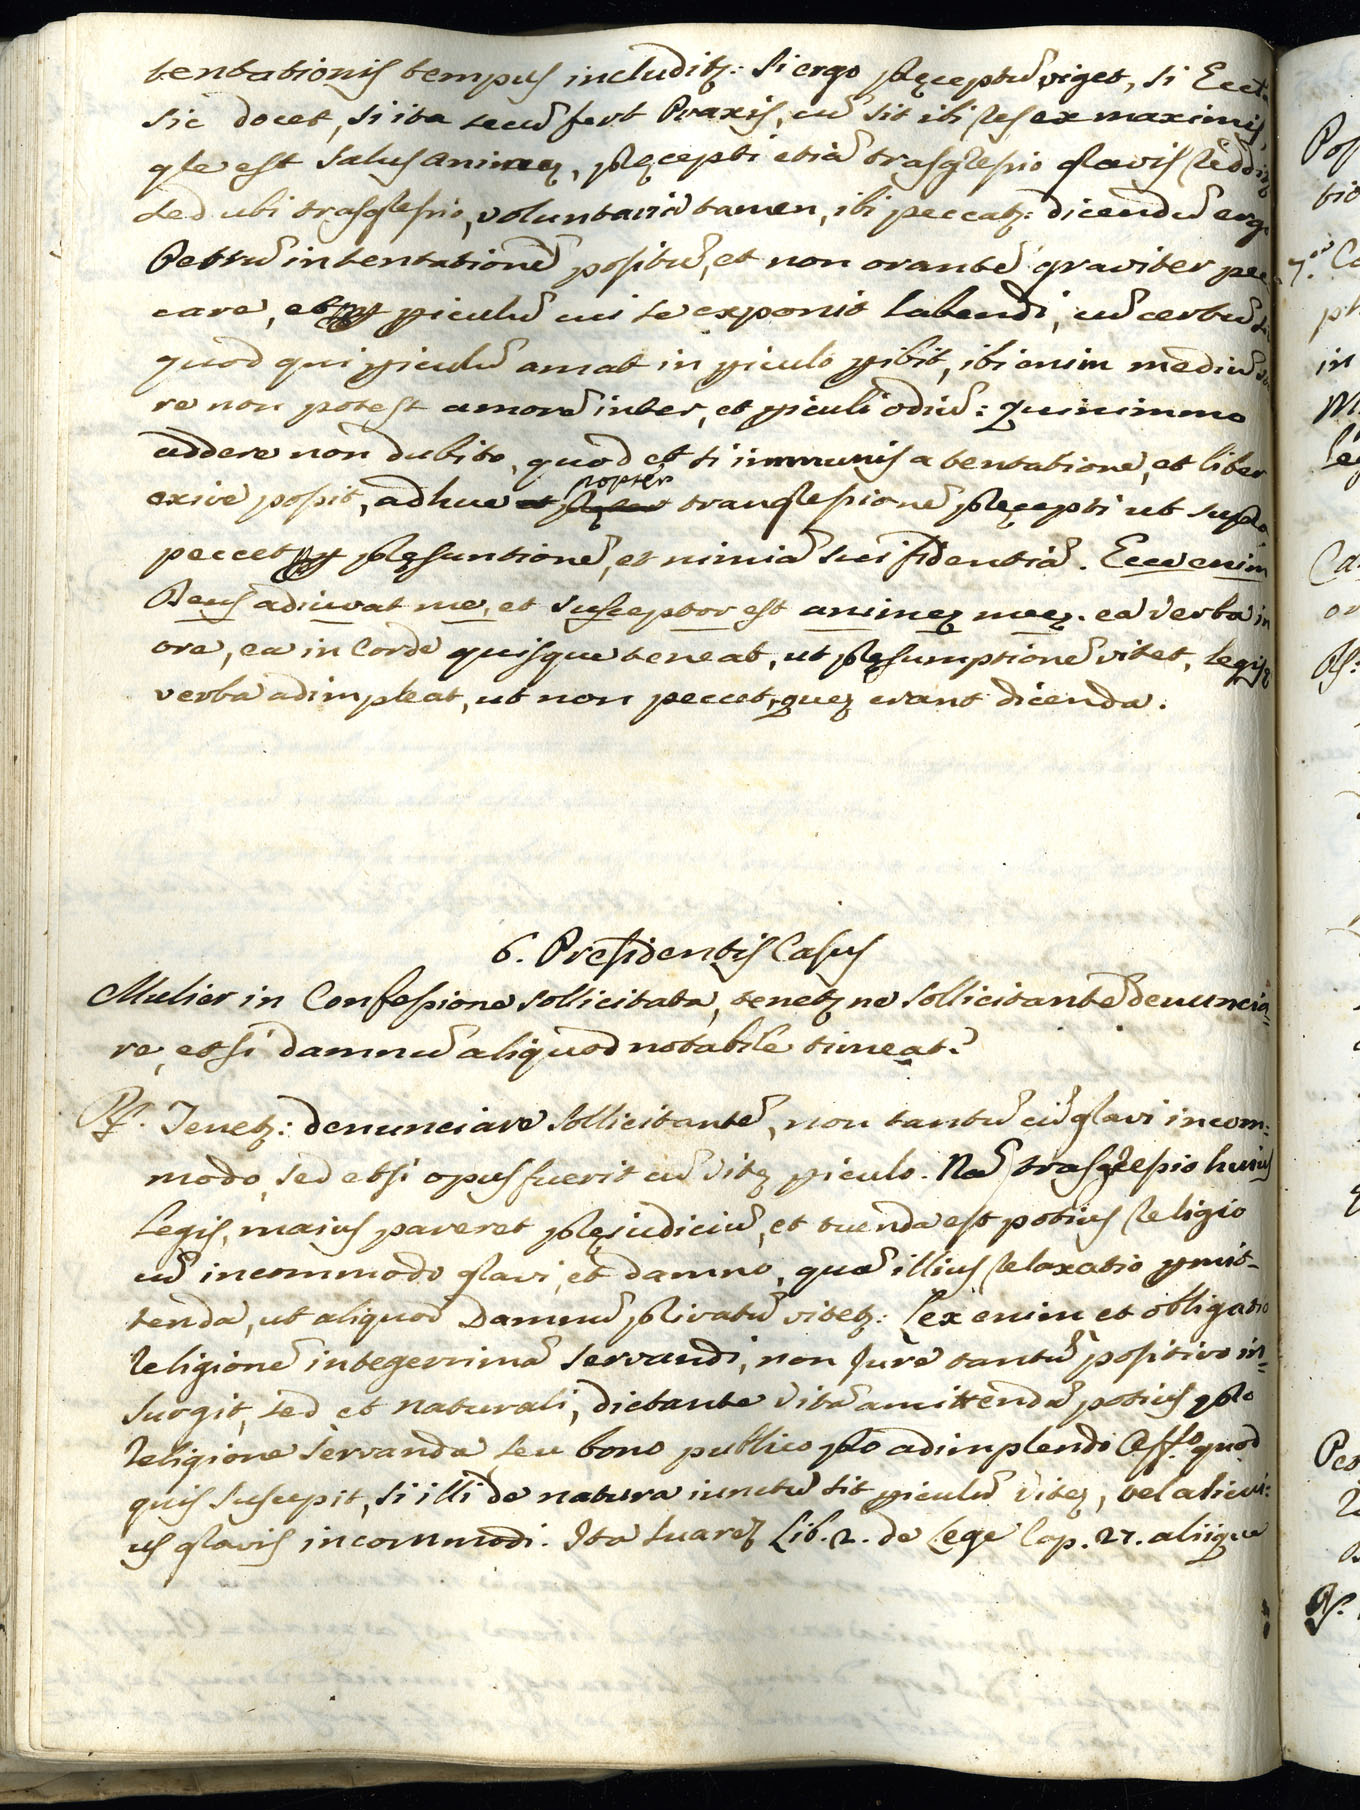 tentationis tempus includitꝫ: si ergo pręceptũ viget, si Eccla
sic docet, si ita secũ fert Praxis, cũ sit ibi res ex maximis,
qle est salus animeę, pręcepti etiã trasgressio gravis reddit
sed ubi trasgressio, voluntaria tamen, ibi peccatꝫ: dicendũ ergo
Petrũ in tentationẽ positũ, et non orantẽ graviter pec
care, et piculũ cui se exponit labendi, cũ certũ sit
quod qui piculũ amat in piculo pibit, ibi enim mediũ da
re non potest amorẽ inter, et piculi odiũ: Quinimmo
addere non dubito, quod et si immunis a tentatione, et liber
exire possit, adhuc propter transgressionẽ pręcepti ut supra
peccet pręsuntionẽ, et nimiã sui fidentiã. Ecce enim
Deus adiuvat me, et susceptor est animeę meeę. ea verba in
ore, ea in Corde quisque teneat, ut pręsumptionẽ vitet, legisqꝫ
verba adimpleat, ut non peccet, queę erant dicenda.
6. Presidentis Casus
Mulier in Confessione sollicitata, tenetꝫ ne sollicitantẽ denuncia=
re, etsi damnũ aliquod notabile timeat?
R. Tenetꝫ: denunciare sollicitantẽ, non tantũ cũ gravi incom=
modo, sed etsi opus fuerit cũ vitę piculo. Nã trasgressio huius
Legis, maius pareret pręiudiciũ, et tuenda est potius religio
cũ incommodo gravi, et damno, quã illius relaxatio pmit-
tenda, ut aliquod damnũ privatũ vitetꝫ: Lex enim et obligatio
religionẽ integerrimã servandi, non Jure tantũ positivo in=
surgit, sed et naturali, dictante vitã amittendã potius pro
religione servanda seu bono publico pro adimplendo Offo. quod
quis suscepit, si illi de natura iunctũ sit piculũ vitę, vel alicui=
us gravis incommodi. Ita Suarez Lib. 2. de Lege Cap. 27. aliique